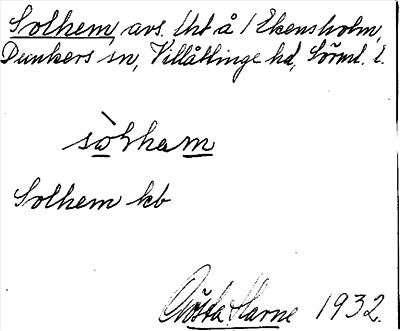 Solhem, avs. lht å / Ekensholm,
Dunkers sn, Villåttinge hd, Sörml. l.
sòlhem
Solhem kb
Gösta Harne 1932.